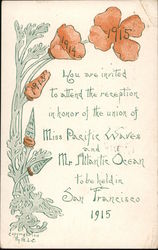 1914
1915
1913
You are invited
to attend the reception
in honor of the union of
Miss Pacific Waves
and
Mr. Atlantic Ocean
to be held in
San Francisco
1915